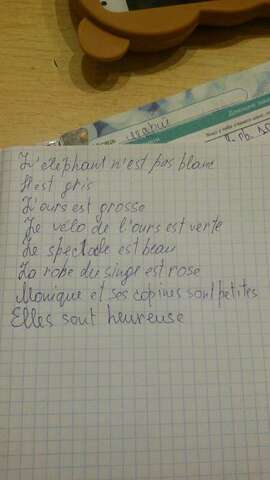 L'eléphant n'est pas blanc
Il est gris
L'ours est grosse
Le vélo de l'ours est verte
Le spectacle est beau
La robe du singe est rose
Monique et ses copines sont petites
Elles sont heureuse